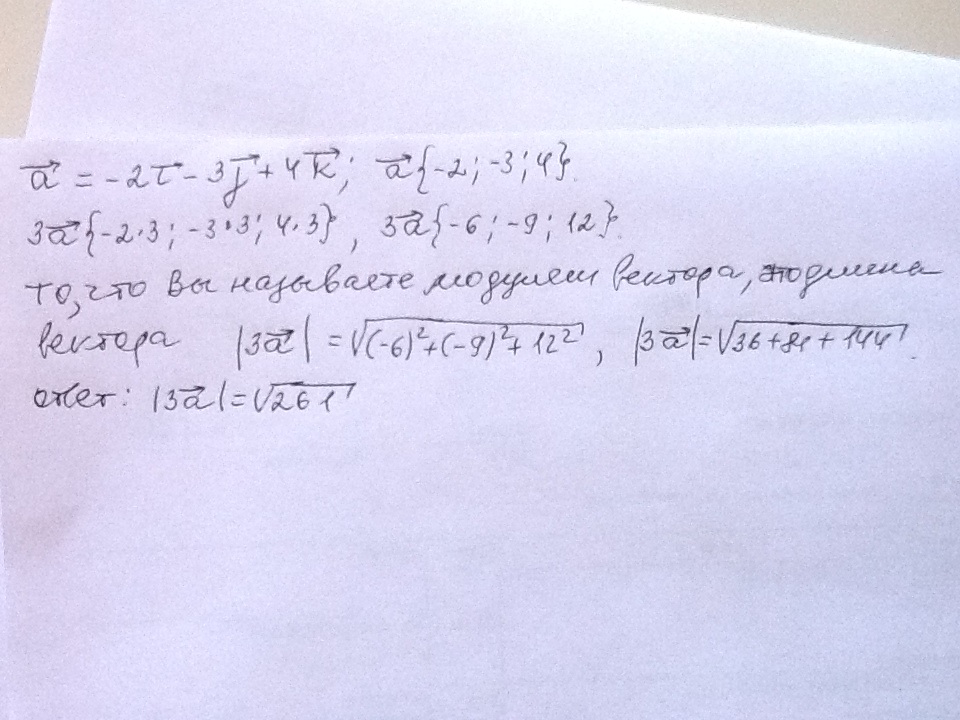 a⃗ = -2i⃗ - 3j⃗ + 4k⃗; a⃗{-2; -3; 4}.
3a⃗{-2·3; -3·3; 4·3}, 3a⃗{-6; -9; 12}.
то, что Вы называете модулем вектора, это длина
вектора |3a⃗| = √((-6)²+(-9)²+12²), |3a⃗| = √(36+81+144).
ответ: |3a⃗| = √261